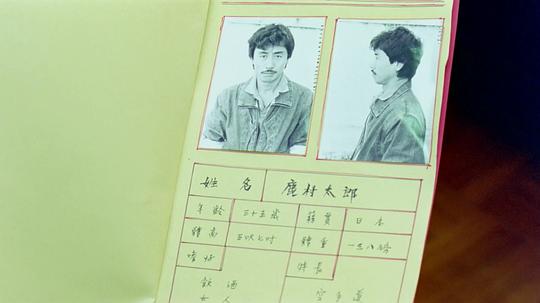 姓名 鹿村太郎
年齡 三十五歲 籍貫 日本
體高 五呎七吋 體重 一三八磅
嗜好 特長
飲酒 空手道
女人